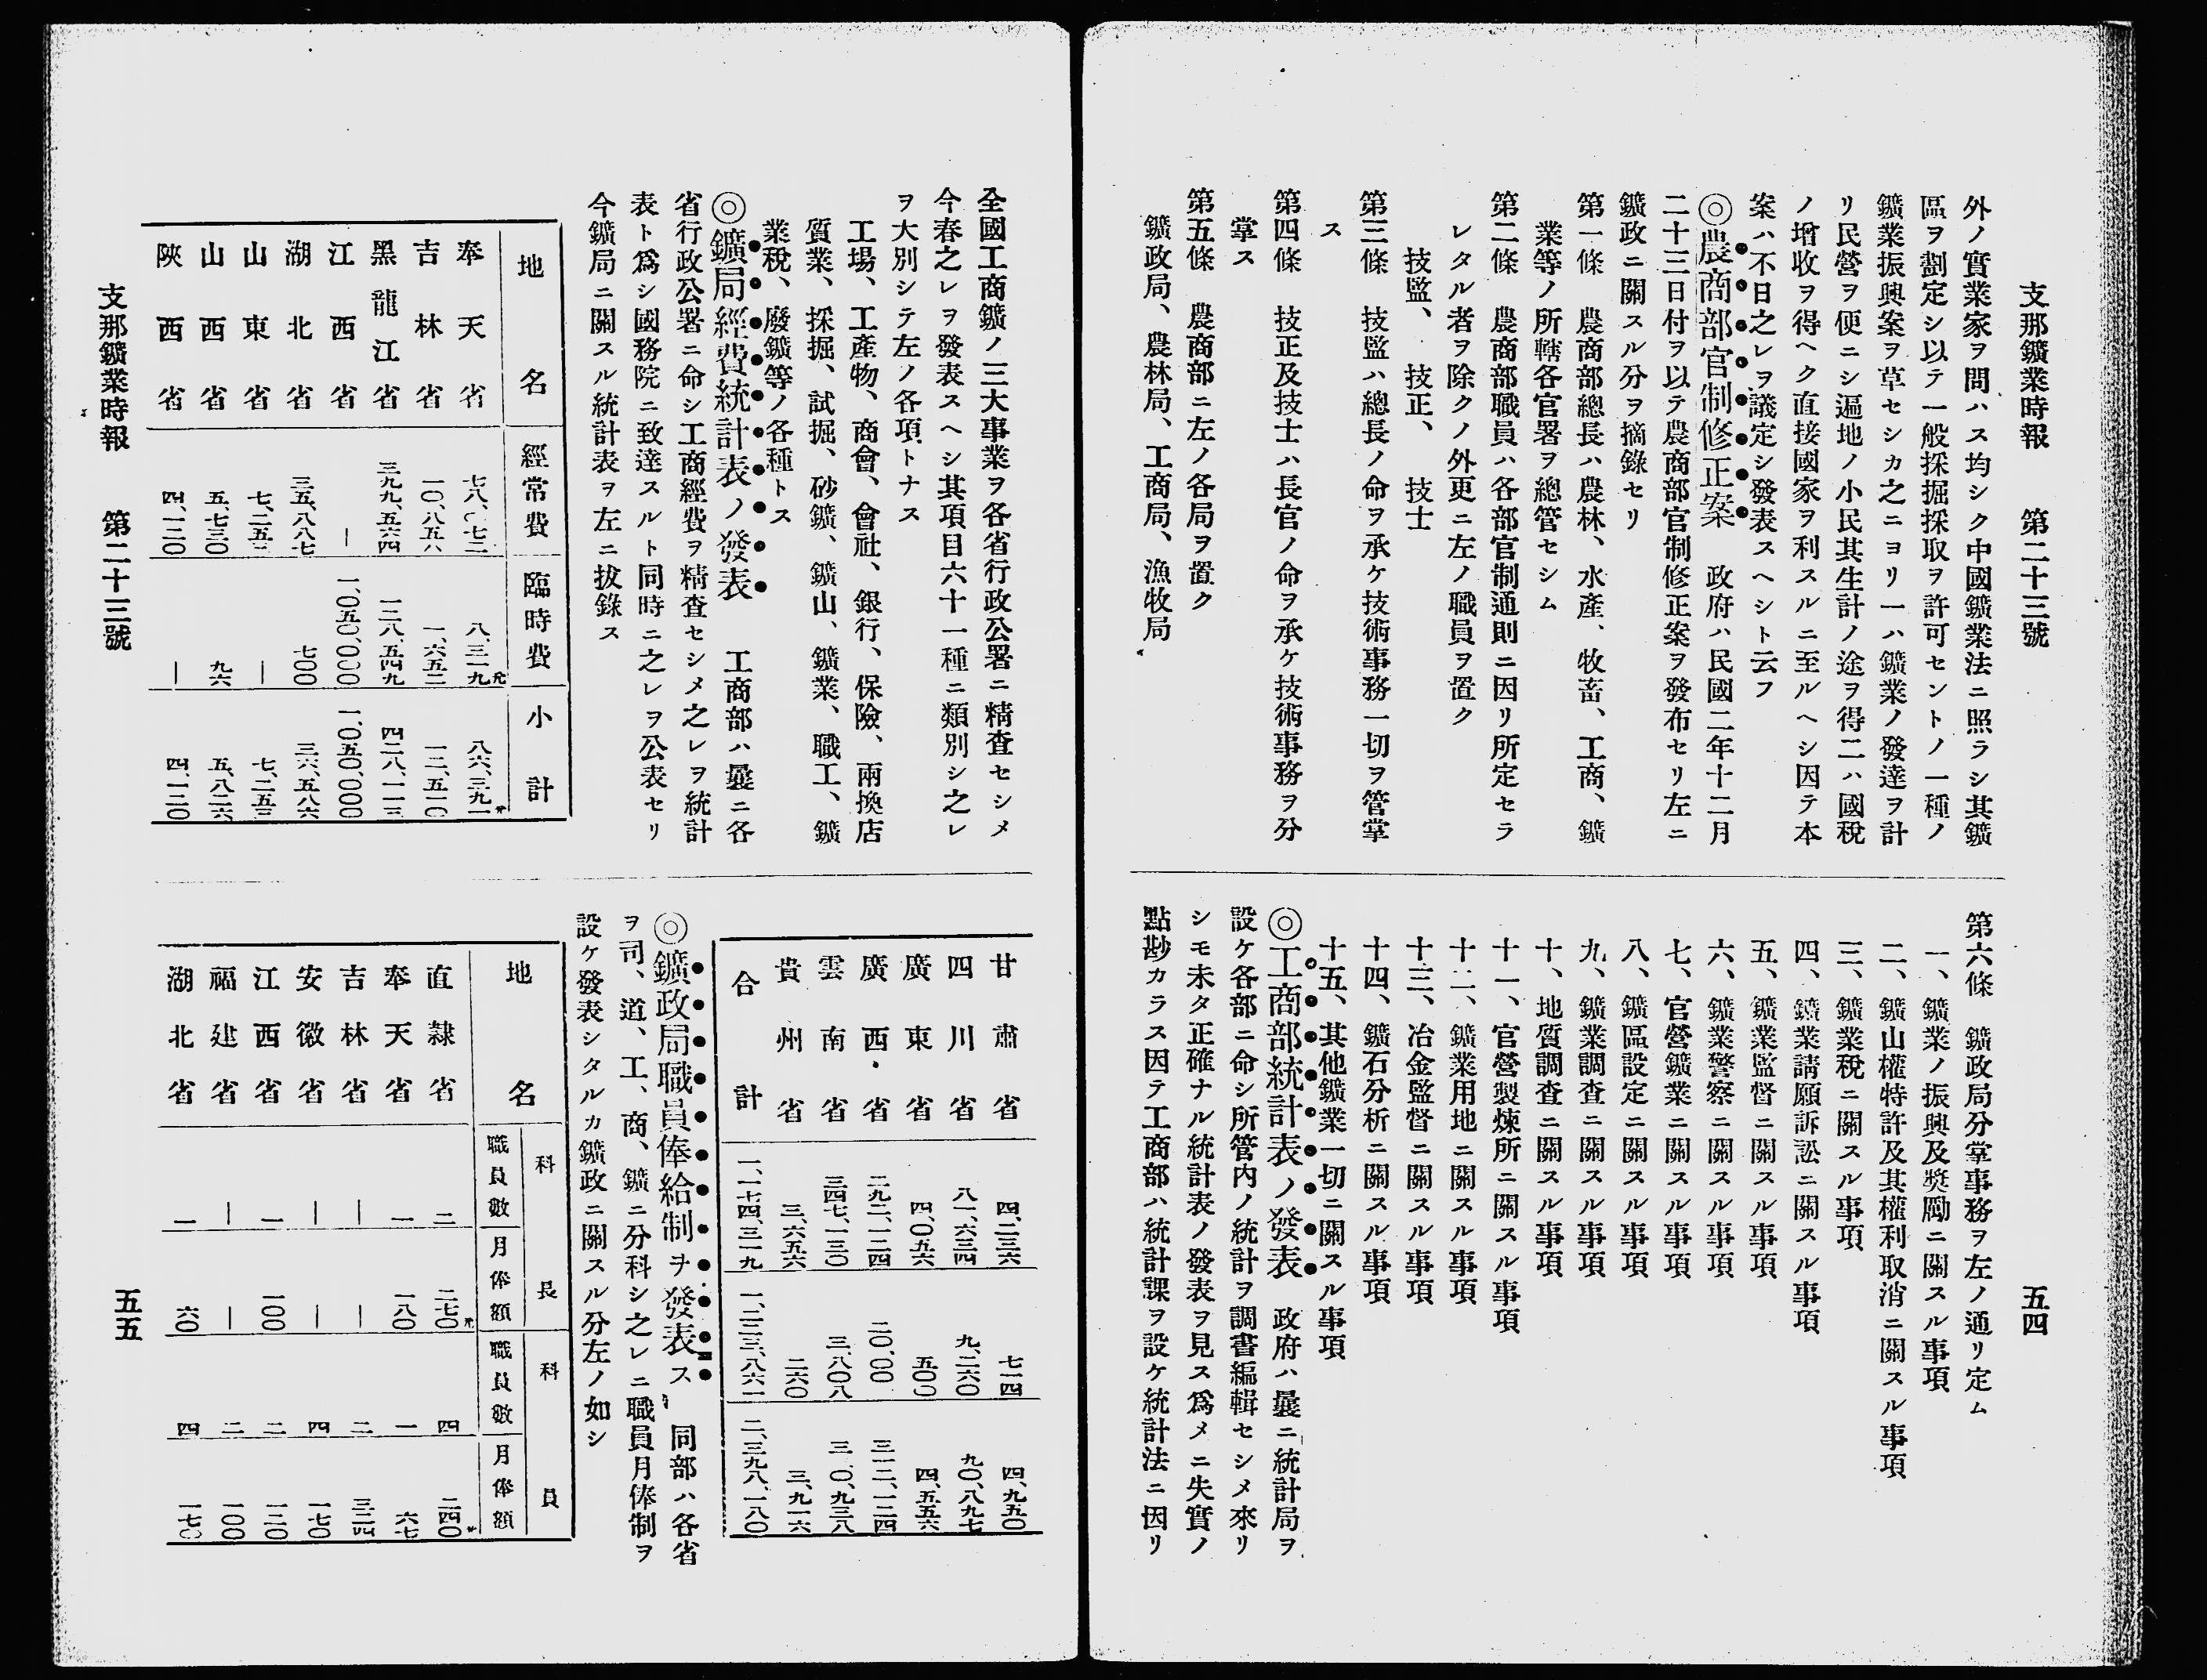 支那鑛業時報　第二十三號　五四
外ノ實業家ヲ問ハス均シク中國鑛業法ニ照ラシ其鑛
區ヲ劃定シ以テ一般採掘採取ヲ許可セントノ一種ノ
鑛業振興案ヲ草セシカ之ニヨリ一ハ鑛業ノ發達ヲ計
リ民營ヲ便ニシ遍地ノ小民其生計ノ途ヲ得二ハ國稅
ノ增收ヲ得ヘク直接國家ヲ利スルニ至ルヘシ因テ本
案ハ不日之レヲ議定シ發表スヘシト云フ
◎農商部官制修正案　政府ハ民國二年十二月
二十三日付ヲ以テ農商部官制修正案ヲ發布セリ左ニ
鑛政ニ關スル分ヲ摘錄セリ
第一條　農商部總長ハ農林、水產、牧畜、工商、鑛
業等ノ所轄各官署ヲ總管セシム
第二條　農商部職員ハ各部官制通則ニ因リ所定セラ
レタル者ヲ除クノ外更ニ左ノ職員ヲ置ク
技監、　技正、　技士
第三條　技監ハ總長ノ命ヲ承ケ技術事務一切ヲ管掌
ス
第四條　技正及技士ハ長官ノ命ヲ承ケ技術事務ヲ分
掌ス
第五條　農商部ニ左ノ各局ヲ置ク
鑛政局、農林局、工商局、漁牧局
第六條　鑛政局分掌事務ヲ左ノ通リ定ム
一、鑛業ノ振興及奬勵ニ關スル事項
二、鑛山權特許及其權利取消ニ關スル事項
三、鑛業稅ニ關スル事項
四、鑛業請願訴訟ニ關スル事項
五、鑛業監督ニ關スル事項
六、鑛業警察ニ關スル事項
七、官營鑛業ニ關スル事項
八、鑛區設定ニ關スル事項
九、鑛業調査ニ關スル事項
十、地質調査ニ關スル事項
十一、官營製煉所ニ關スル事項
十二、鑛業用地ニ關スル事項
十三、冶金監督ニ關スル事項
十四、鑛石分析ニ關スル事項
十五、其他鑛業一切ニ關スル事項
◎工商部統計表ノ發表　政府ハ曩ニ統計局ヲ
設ケ各部ニ命シ所管內ノ統計ヲ調書編輯セシメ來リ
シモ未タ正確ナル統計表ノ發表ヲ見ス爲メニ失實ノ
點尠カラス因テ工商部ハ統計課ヲ設ケ統計法ニ因リ
全國工商鑛ノ三大事業ヲ各省行政公署ニ精査セシメ
今春之レヲ發表スヘシ其項目六十一種ニ類別シ之レ
ヲ大別シテ左ノ各項トナス
工場、工產物、商會、會社、銀行、保險、兩換店
質業、採掘、試掘、砂鑛、鑛山、鑛業、職工、鑛
業稅、廢鑛等ノ各種トス
◎鑛局經費統計表ノ發表　工商部ハ曩ニ各
省行政公署ニ命シ工商經費ヲ精査セシメ之レヲ統計
表ト爲シ國務院ニ致達スルト同時ニ之レヲ公表セリ
今鑛局ニ關スル統計表ヲ左ニ拔錄ス
地名　經常費　臨時費　小計
奉天省　七八、〇七二　八、三一九元　八六、三九一元
吉林省　一〇、八五八　一、六五二　一二、五一〇
黑龍江省　三九九、五六四　二八、五四九　四二八、一一三
江西省　—　一、〇五〇、〇〇〇　一、〇五〇、〇〇〇
湖北省　三五、八八七　七〇〇　三六、五八六
山東省　七、二五三　—　七、二五三
山西省　五、七三〇　九六　五、八二六
陝西省　四、一二〇　—　四、一二〇
甘肅省　四、二三六　七一四　四、九五〇
四川省　八一、六三四　九、二六〇　九〇、八九七
廣東省　四、〇五六　五〇〇　四、五五六
廣西省　二九二、一二四　二〇、〇〇　三一二、一二四
雲南省　三四七、一三〇　三、八〇八　三 〇、九三八
貴州省　三、六五六　二六〇　三、九一六
合計　一、一七四、三一九　一、二二三、八六一　二、三九八、一八〇
◎鑛政局職員俸給制ヲ發表ス　同部ハ各省
ヲ司、道、工、商、鑛ニ分科シ之レニ職員月俸制ヲ
設ケ發表シタルカ鑛政ニ關スル分左ノ如シ
地名　科長　科員
職員數　月俸額　職員數　月俸額
直隸省　二　二七〇元　四　二四〇元
奉天省　一　一八〇　一　六七
吉林省　—　—　二　三二四
安徽省　—　—　四　一七〇
江西省　一　一〇〇　二　一二〇
福建省　—　—　二　一〇〇
湖北省　一　六〇　四　一七〇
支那鑛業時報　第二十三號　五五